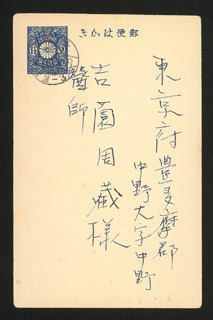 郵便はかき
東京府豊多摩郡
中野大字中野
醫師
吉薗周蔵様